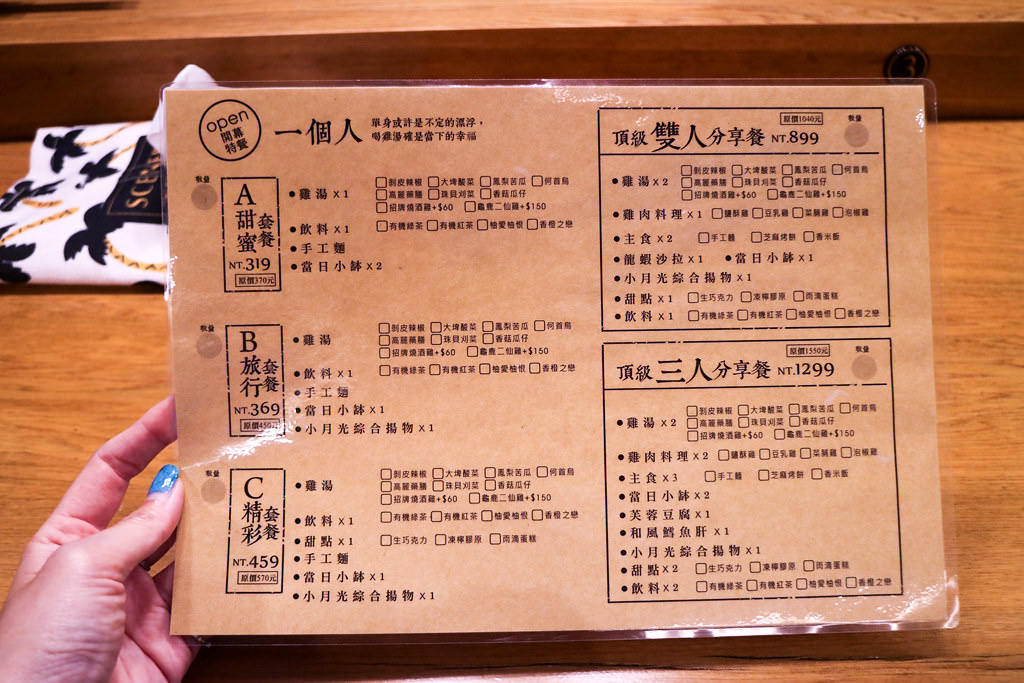 open
開幕
特餐
一個人
單身或許是不定的漂浮，
喝雞湯確是當下的幸福
數量
A
甜蜜套餐
NT.319
原價370元
雞湯 x1
剝皮辣椒 大埤酸菜 鳳梨苦瓜 何首烏
高麗藥膳 珠貝刈菜 香菇瓜仔
招牌燒酒雞+$60 龜鹿二仙雞+$150
飲料 x1
有機綠茶 有機紅茶 柚愛柚恨 香橙之戀
手工麵
當日小缽 x2
數量
B
旅行套餐
NT.369
原價450元
雞湯
剝皮辣椒 大埤酸菜 鳳梨苦瓜 何首烏
高麗藥膳 珠貝刈菜 香菇瓜仔
招牌燒酒雞+$60 龜鹿二仙雞+$150
飲料 x1
有機綠茶 有機紅茶 柚愛柚恨 香橙之戀
手工麵
當日小缽 x1
小月光綜合揚物 x1
數量
C
精彩套餐
NT.459
原價570元
雞湯
剝皮辣椒 大埤酸菜 鳳梨苦瓜 何首烏
高麗藥膳 珠貝刈菜 香菇瓜仔
招牌燒酒雞+$60 龜鹿二仙雞+$150
飲料 x1
有機綠茶 有機紅茶 柚愛柚恨 香橙之戀
甜點 x1
生巧克力 凍檸膠原 雨滴蛋糕
手工麵
當日小缽 x1
小月光綜合揚物 x1
頂級雙人分享餐 NT.899
原價1040元
數量
雞湯 x2
剝皮辣椒 大埤酸菜 鳳梨苦瓜 何首烏
高麗藥膳 珠貝刈菜 香菇瓜仔
招牌燒酒雞+$60 龜鹿二仙雞+$150
雞肉料理 x1 鹽酥雞 豆乳雞 菜脯雞 泡椒雞
主食 x2 手工麵 芝麻烤餅 香米飯
龍蝦沙拉 x1 當日小缽 x1
小月光綜合揚物 x1
甜點 x1 生巧克力 凍檸膠原 雨滴蛋糕
飲料 x1 有機綠茶 有機紅茶 柚愛柚恨 香橙之戀
頂級三人分享餐 NT.1299
原價1550元
數量
雞湯 x2
剝皮辣椒 大埤酸菜 鳳梨苦瓜 何首烏
高麗藥膳 珠貝刈菜 香菇瓜仔
招牌燒酒雞+$60 龜鹿二仙雞+$150
雞肉料理 x2 鹽酥雞 豆乳雞 菜脯雞 泡椒雞
主食 x3 手工麵 芝麻烤餅 香米飯
當日小缽 x2
芙蓉豆腐 x1
和風鱈魚肝 x1
小月光綜合揚物 x1
甜點 x2 生巧克力 凍檸膠原 雨滴蛋糕
飲料 x2 有機綠茶 有機紅茶 柚愛柚恨 香橙之戀
3